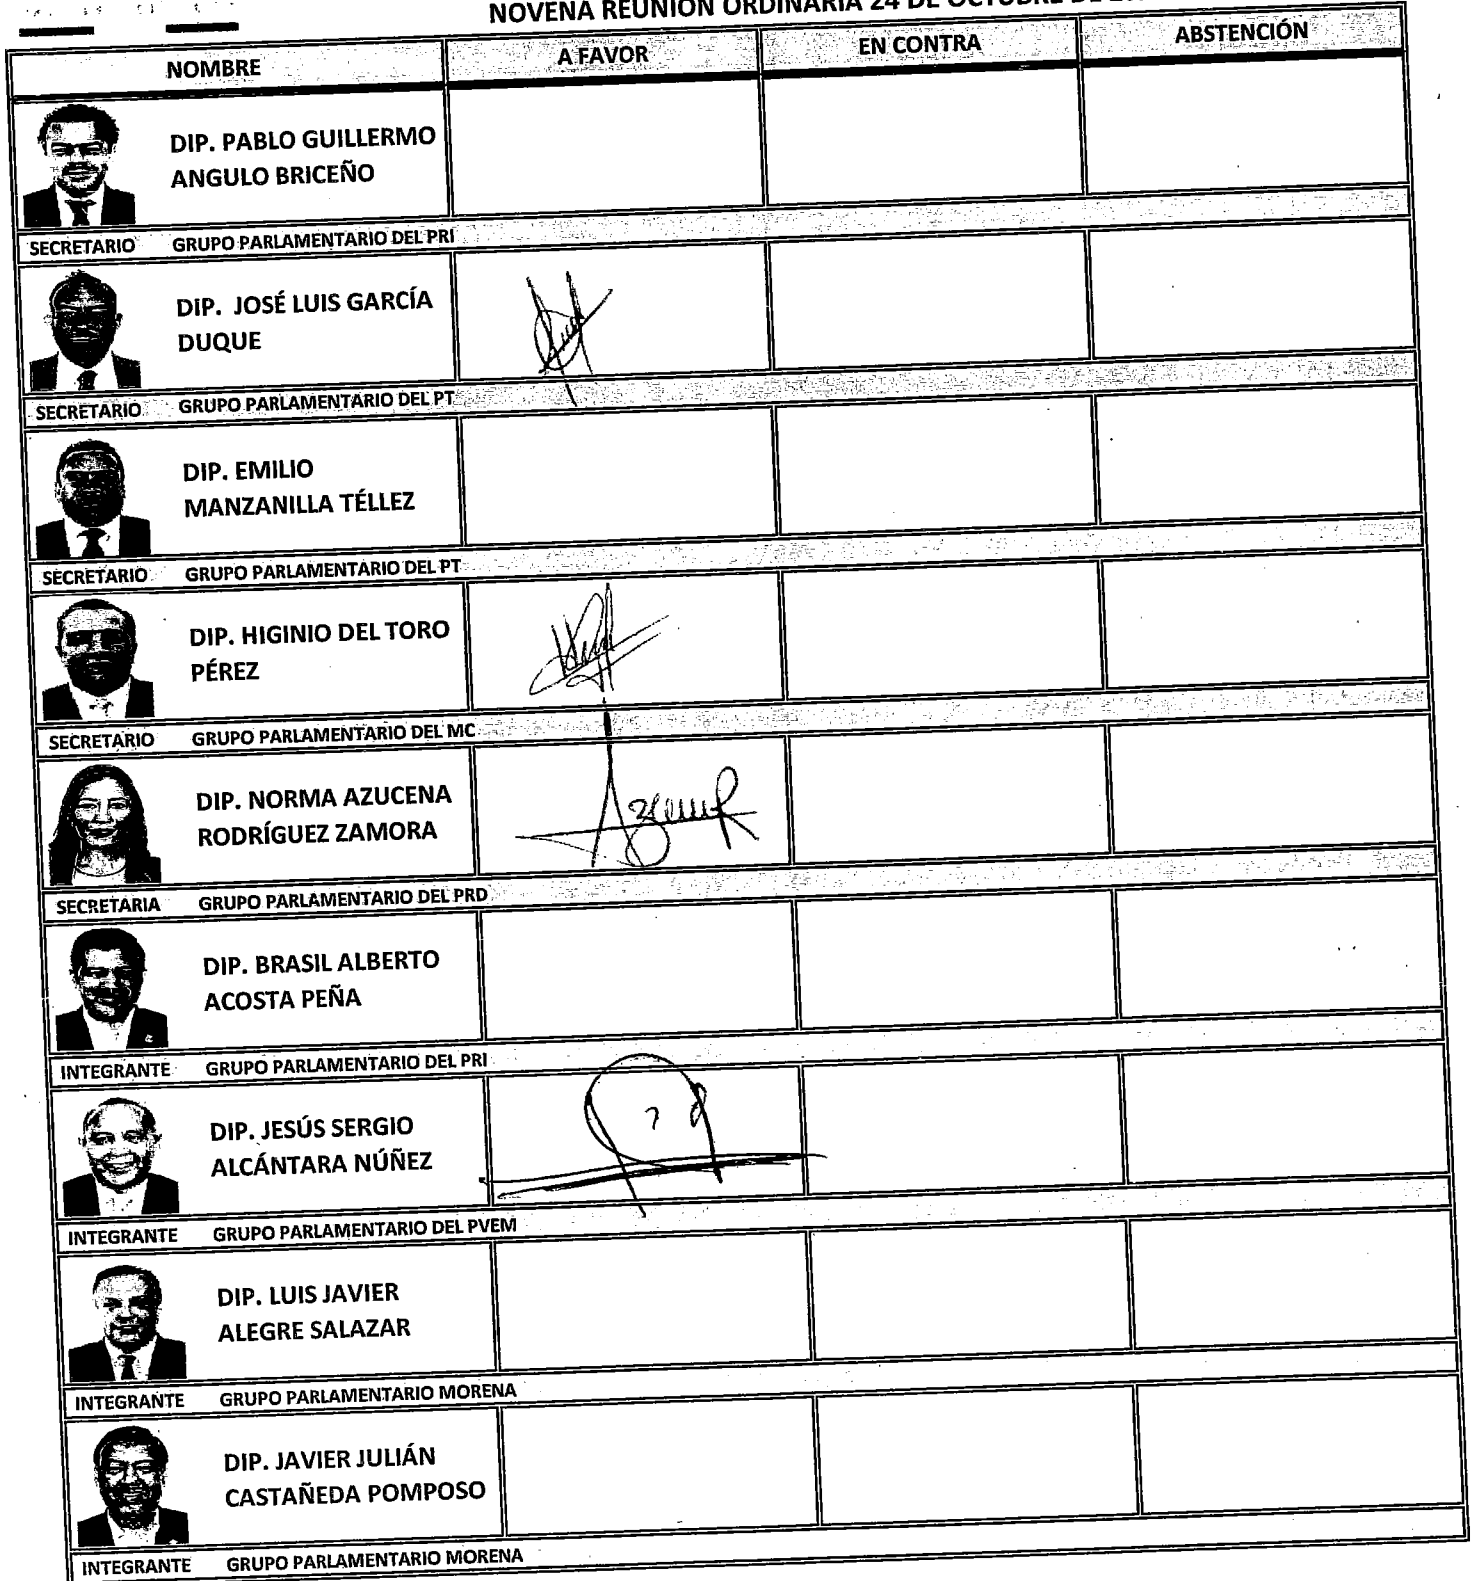 NOVENA REUNIÓN ORDINARIA 24 DE OCTUBRE DE
NOMBRE A FAVOR EN CONTRA ABSTENCIÓN
DIP. PABLO GUILLERMO
ANGULO BRICEÑO
SECRETARIO GRUPO PARLAMENTARIO DEL PRI
DIP. JOSÉ LUIS GARCÍA
DUQUE
SECRETARIO GRUPO PARLAMENTARIO DEL PT
DIP. EMILIO
MANZANILLA TÉLLEZ
SECRETARIO GRUPO PARLAMENTARIO DEL PT
DIP. HIGINIO DEL TORO
PÉREZ
SECRETARIO GRUPO PARLAMENTARIO DEL MC
DIP. NORMA AZUCENA
RODRÍGUEZ ZAMORA
SECRETARIA GRUPO PARLAMENTARIO DEL PRD
DIP. BRASIL ALBERTO
ACOSTA PEÑA
INTEGRANTE GRUPO PARLAMENTARIO DEL PRI
DIP. JESÚS SERGIO
ALCÁNTARA NÚÑEZ
INTEGRANTE GRUPO PARLAMENTARIO DEL PVEM
DIP. LUIS JAVIER
ALEGRE SALAZAR
INTEGRANTE GRUPO PARLAMENTARIO MORENA
DIP. JAVIER JULIÁN
CASTAÑEDA POMPOSO
INTEGRANTE GRUPO PARLAMENTARIO MORENA